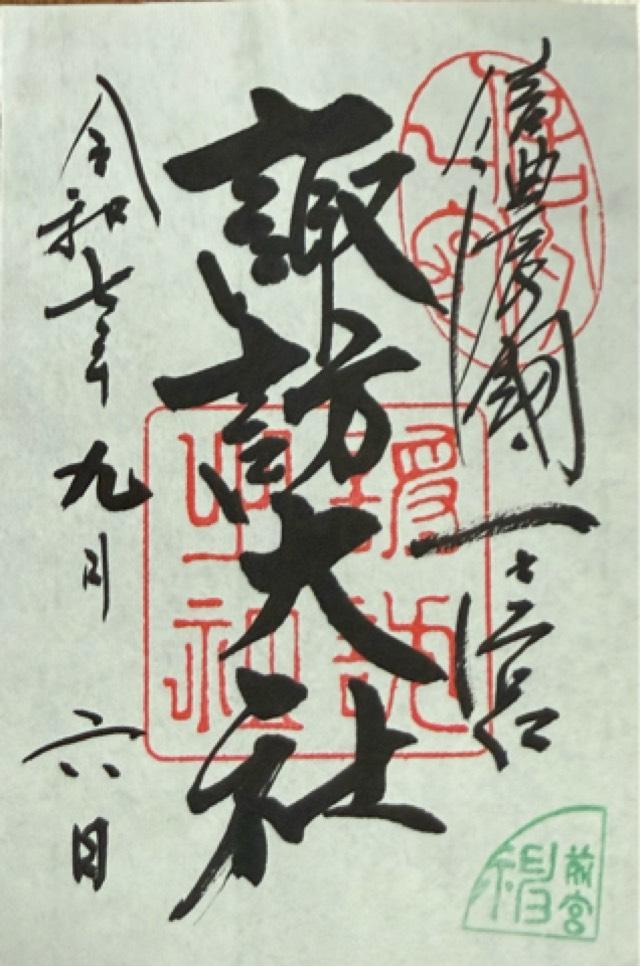 信濃國一之宮
諏訪大社
令和七年九月六日
前宮